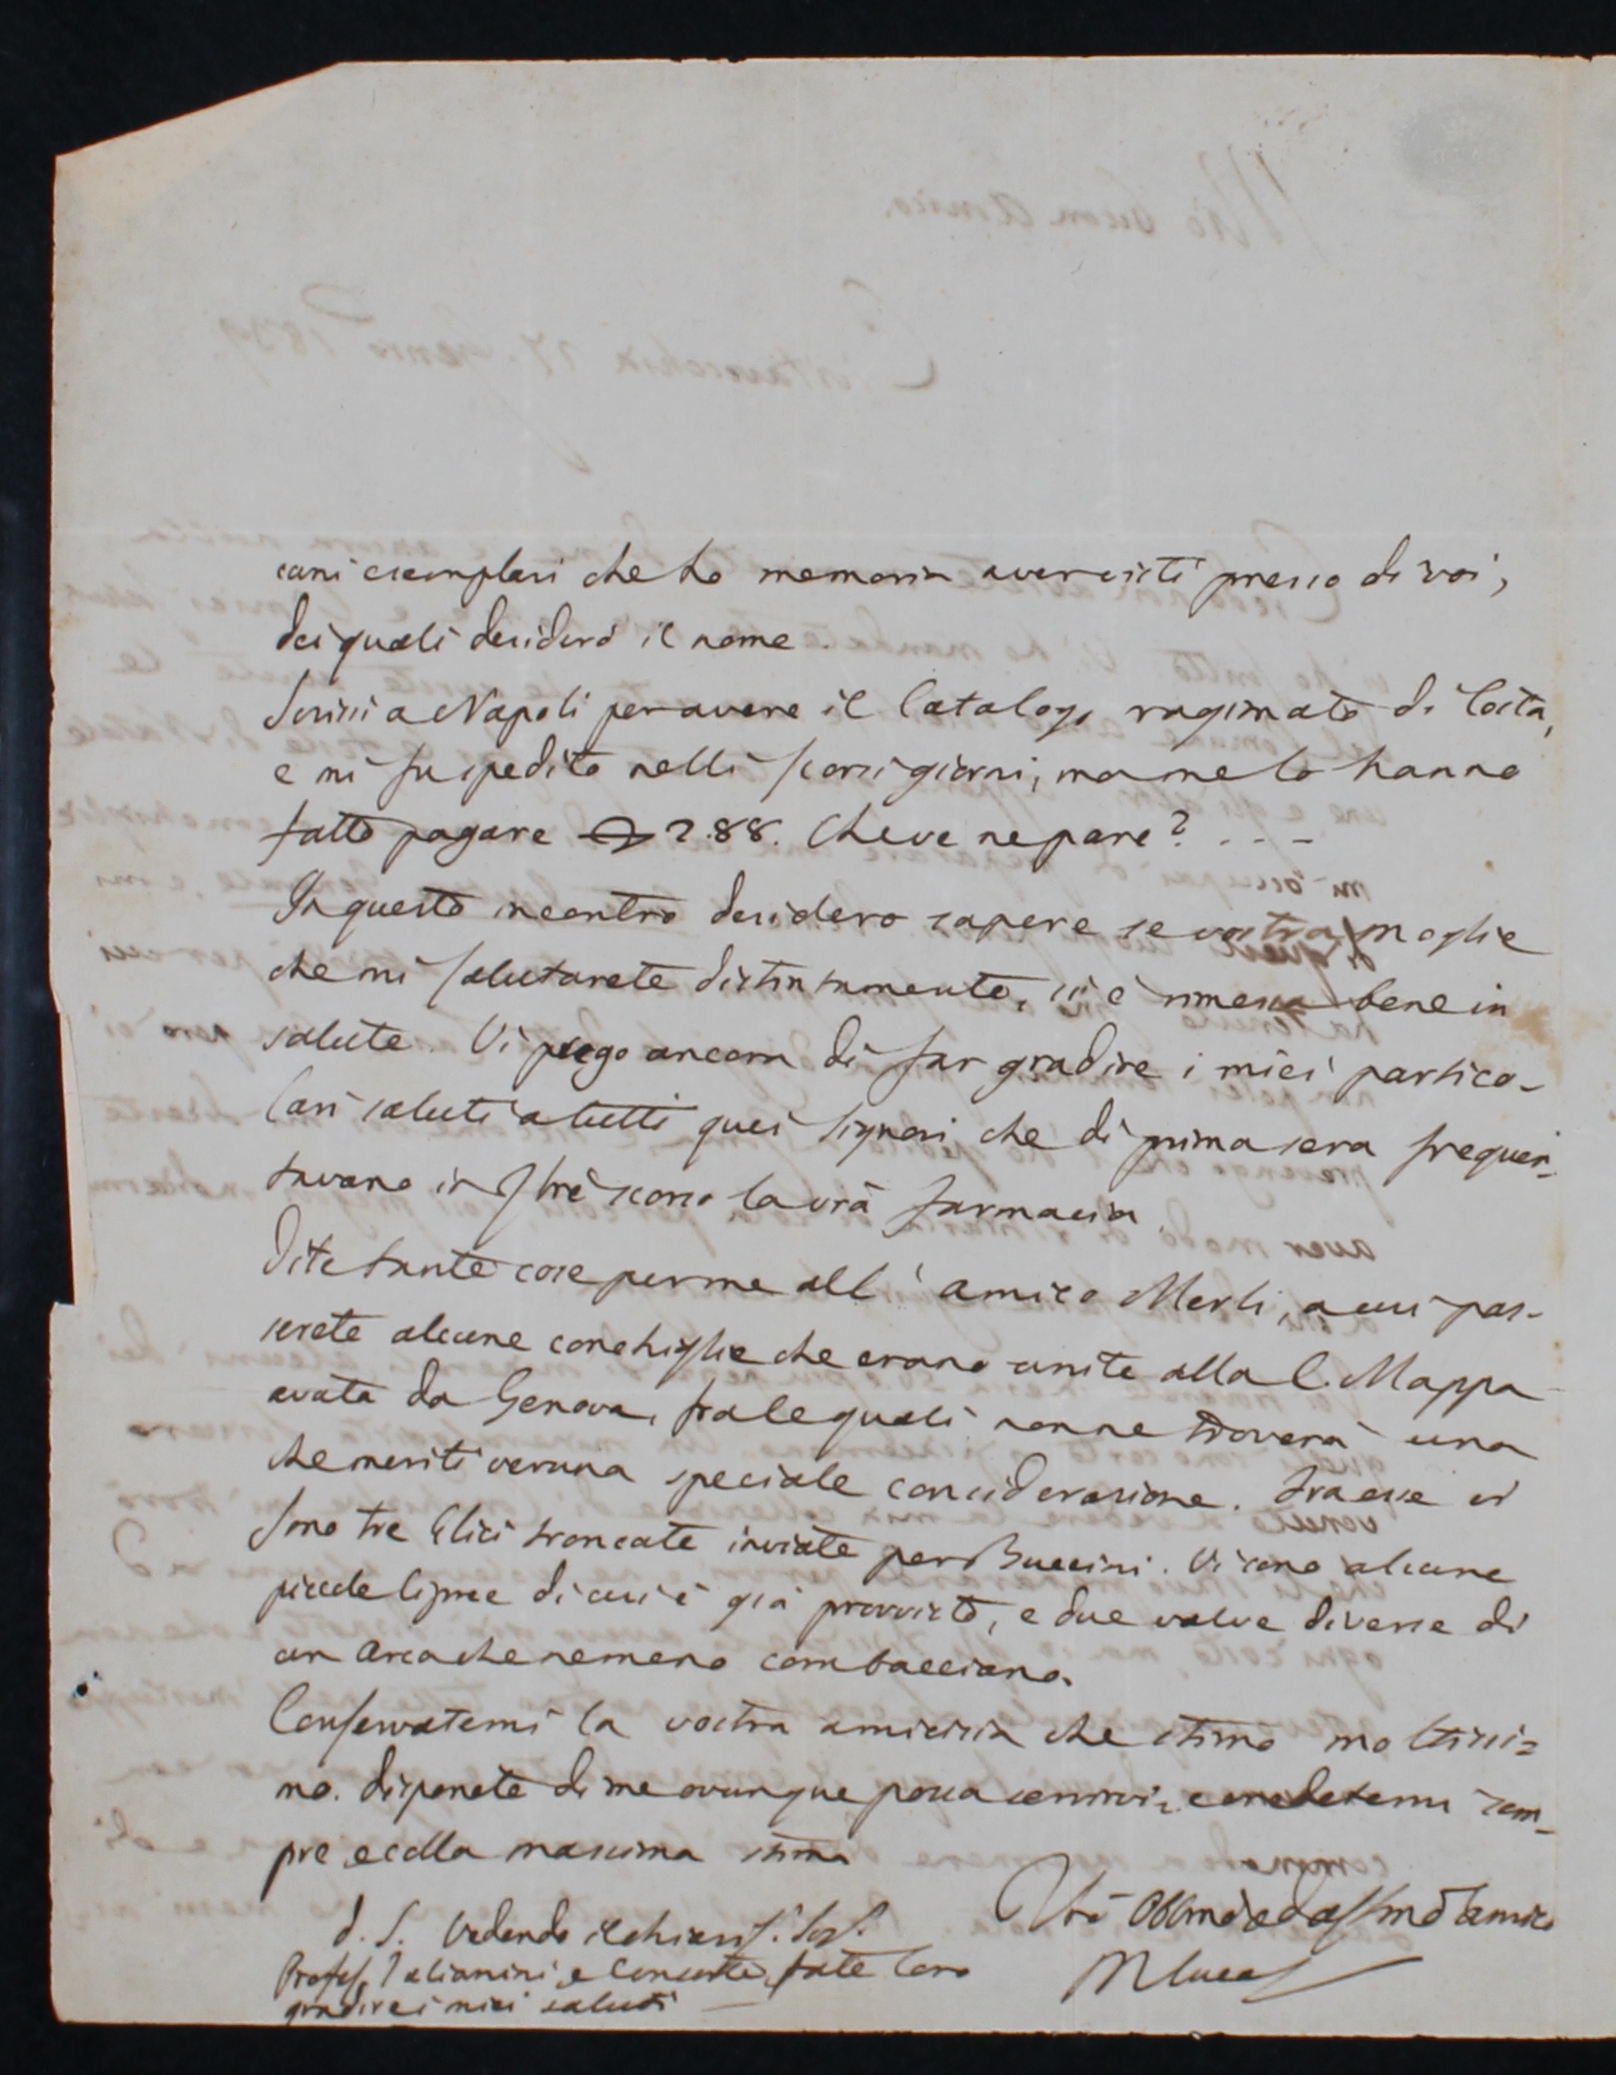 cuni esemplari che ho memoria aver visti presso di voi,
dei quali desiderò il nome.
Scrissi a Napoli per avere il Catalogo ragionato di Costa,
e mi fu spedito nelli scorsi giorni, ma me lo hanno
fatto pagare 2.88. Che ve ne pare? . . –
In questo incontro desidero sapere se vostra moglie
che mi salutarete distintamente, si è rimessa bene in
salute. Vi prego ancora di far gradire i miei partico-
lari saluti a tutti quei signori che di prima sera frequen-
tavano in 7bre scorso la vrã farmacia.
Dite tante cose per me all' amico Merli, a cui pas-
serete alcune conchiglie che erano unite alla C. Mappa
avuta da Genova, fra le quali non ne troverà una
che meriti veruna speciale considerazione. Fra esse vi
sono tre Elici troncate inviate per Buccini. Vi sono alcune
piccole Cipree di cui è già provvisto, e due valve diverse di
un Arca che nemeno combacciano.
Conservatemi la vostra amicizia che stimo moltissi=
mo. Disponete di me ovunque possa servirvi, e credetemi sem-
pre, e colla massima stima
Vrõ Obblmo ed affmo amico
P. S. Vedendo il chiariss. Sig.
Profess. e Consorte, fate loro
gradire i miei saluti —